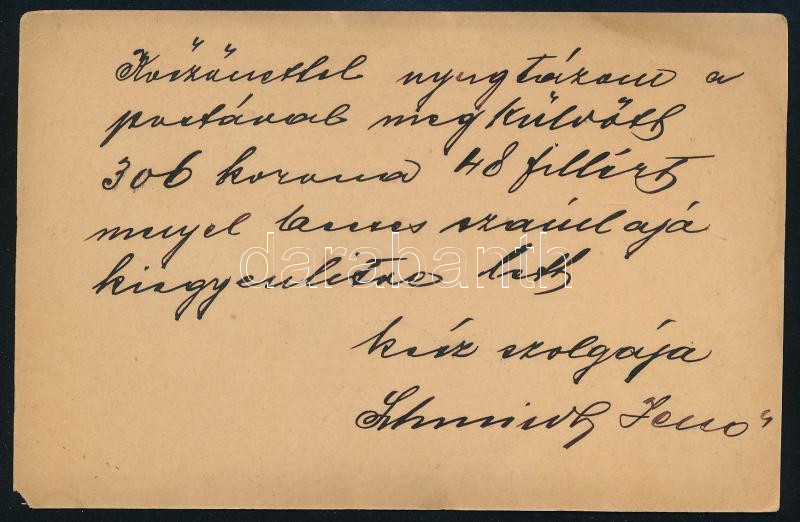 Köszönettel nyugtázom a
postával megküldött
306 korona 48 fillért
melyel becses számlája
kiegyenlitve lett
kész szolgája
Schmidt Jenő
darabanth